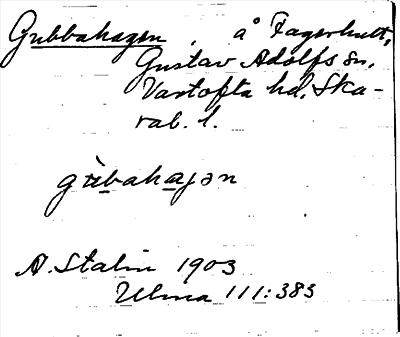 Gubbahagen, å Fagerhult,
Gustav Adolfs sn,
Vartofta hd, Ska-
rab. l.
gùbahaɡən
A. Stalin 1903
Ulma 111:383